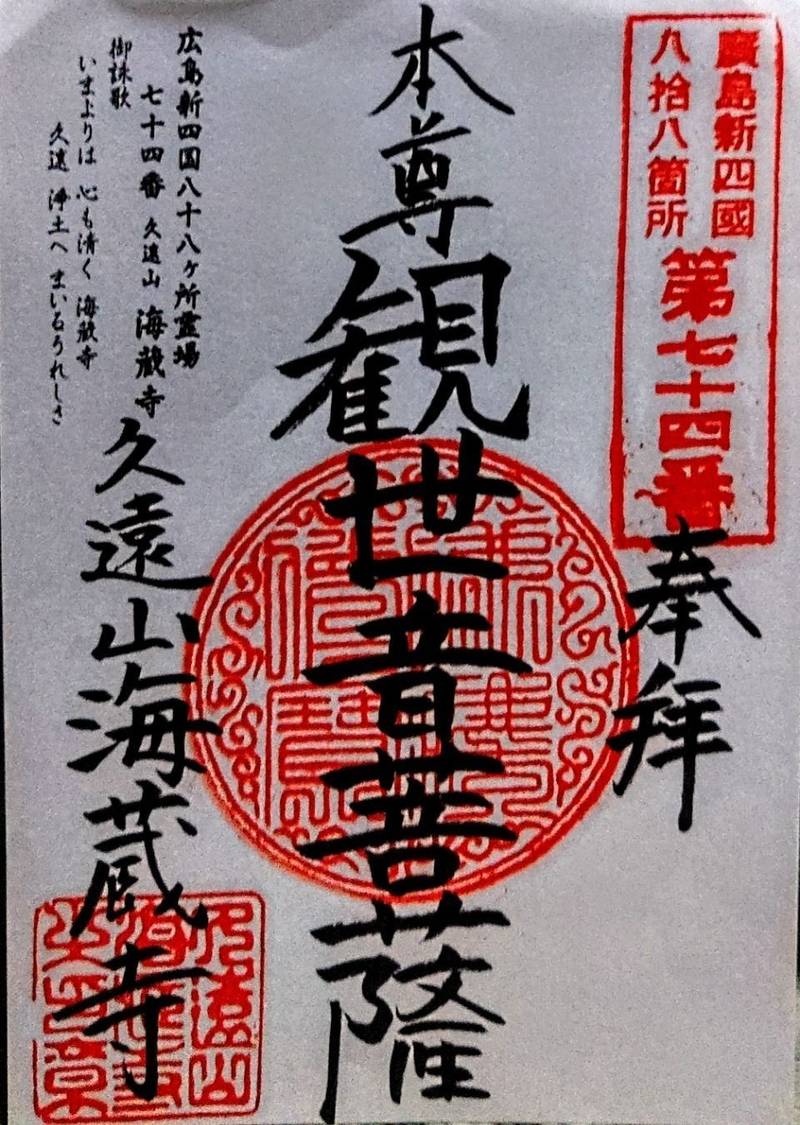 廣島新四國
八拾八箇所
第七十四番
奉拜
本尊観世音菩薩
広島新四国八十八ヶ所霊場
七十四番 久遠山 海蔵寺
御詠歌
いまよりは 心も清く 海蔵寺
久遠 浄土へ まいるうれしさ
久遠山海蔵寺
佛法僧寶